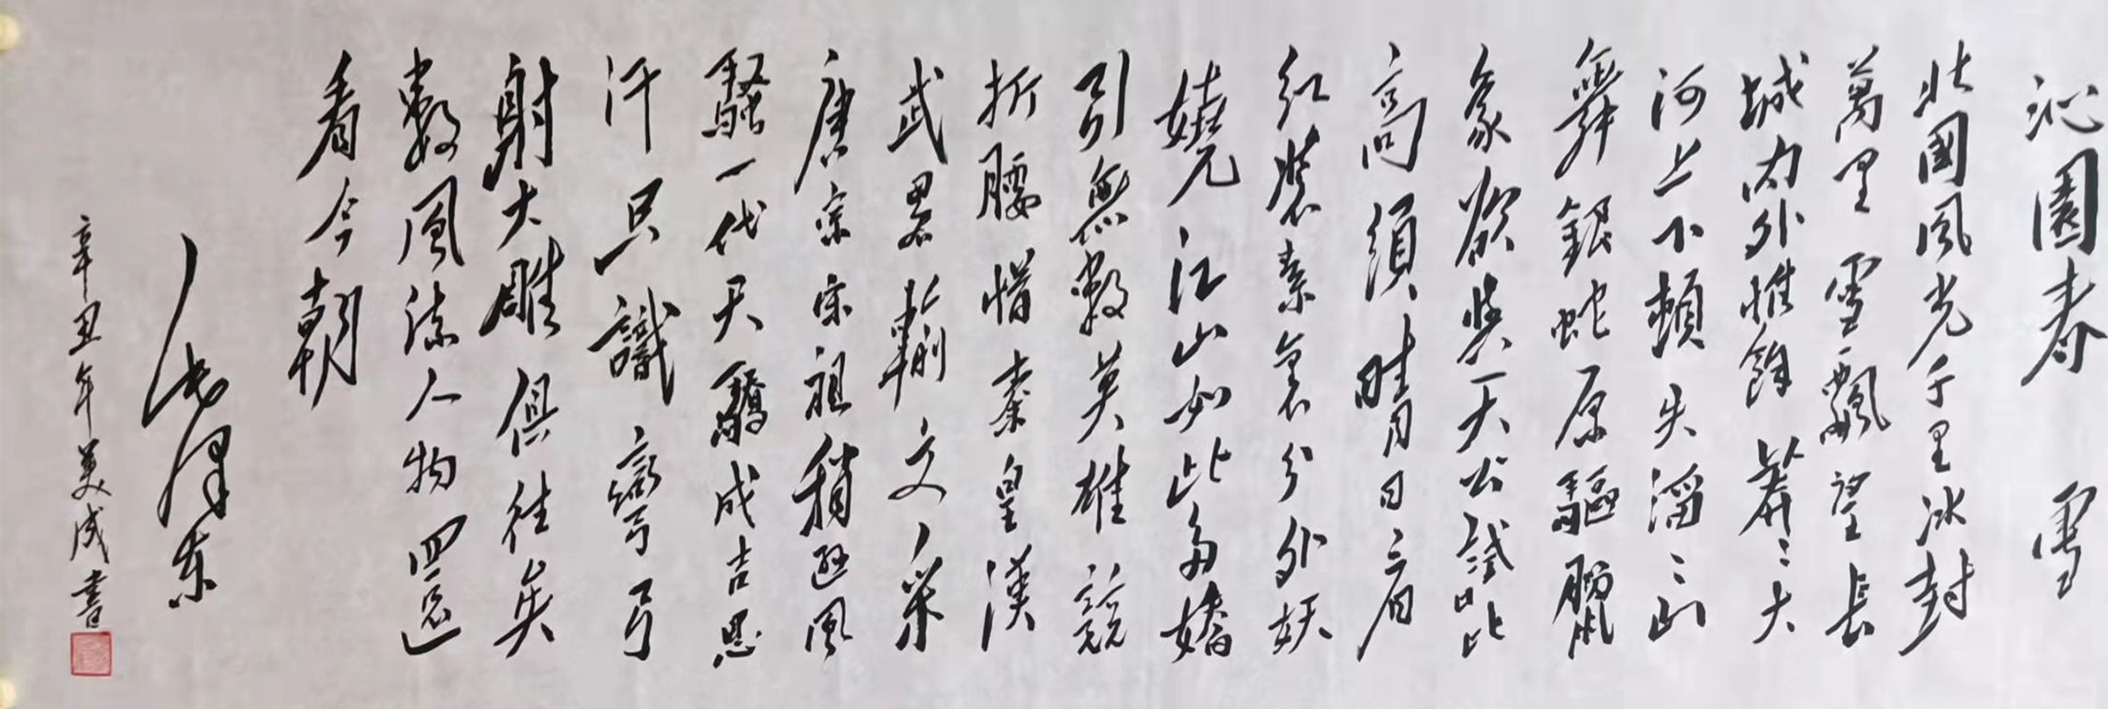 沁園春 雪
北國風光千里冰封
萬里雪飄望長
城内外惟餘莽〻大
河上下頓失滔〻山
舞銀蛇原驅臘
象欲與天公試比
高須晴日看
紅裝素裹分外妖
嬈江山如此多嬌
引無數英雄競
折腰惜秦皇漢
武略輸文采
唐宗宋祖稍遜風
騷一代天驕成吉思
汗只識彎弓
射大雕俱往矣
數風流人物還
看今朝
毛澤东
辛丑年美成書